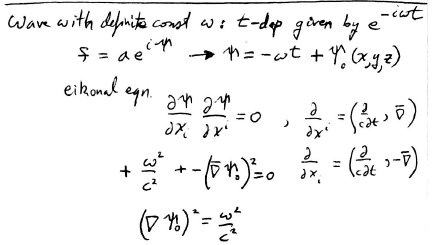 Wave with definite const ω : t-dep given by e^{-iωt}
f = a e^{iψ} → ψ = -ωt + ψ₀(x,y,z)
eikonal eqn. ∂ψ/∂x_i ∂ψ/∂x^i = 0 , ∂/∂x^i = (∂/c∂t , ∇̄)
+ ω²/c² + -(∇̄ψ₀)² = 0 ∂/∂x_i = (∂/c∂t , -∇̄)
(∇ψ₀)² = ω²/c²